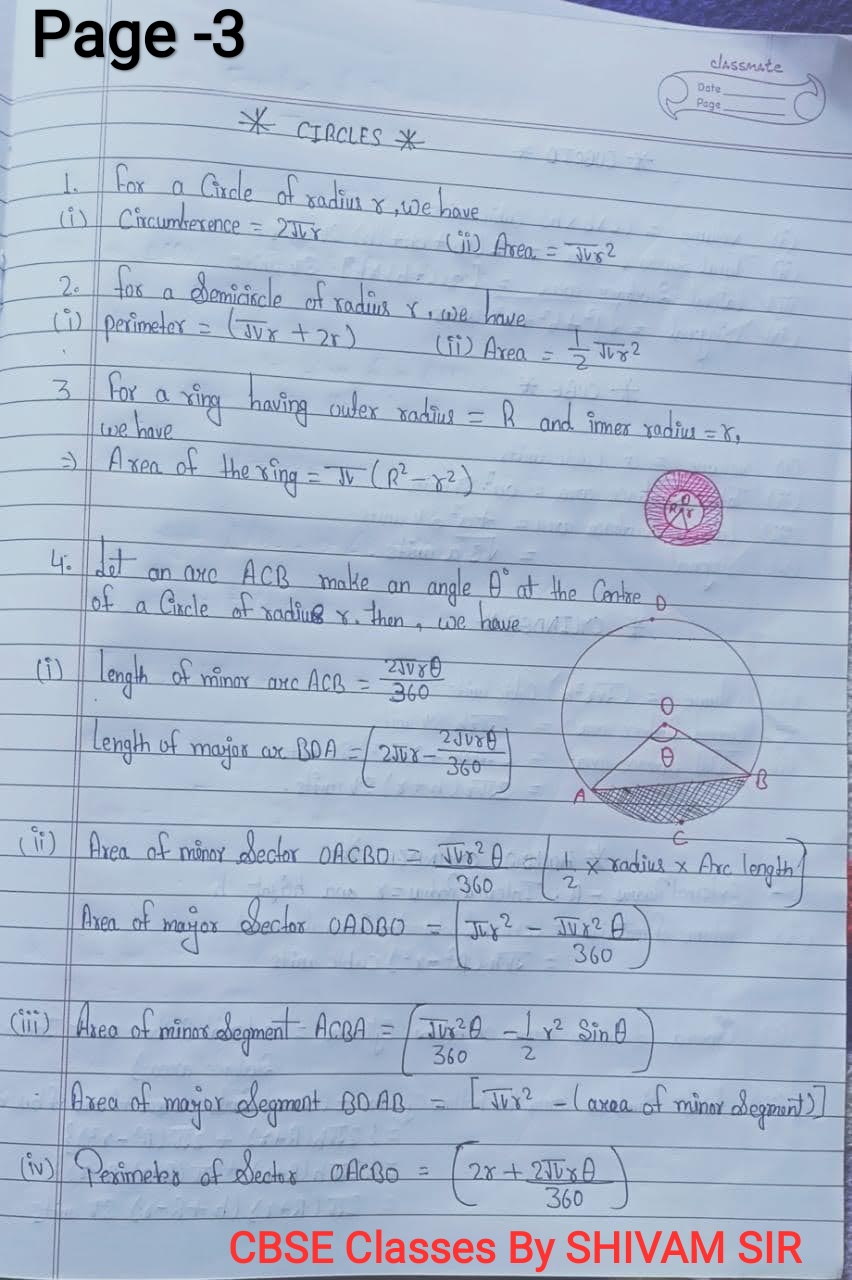 Page -3
classmate
Date
Page
* CIRCLES *
1. For a Circle of radius r, we have
(i) Circumference = 2πr (ii) Area = πr²
2. for a Semicircle of radius r, we have
(i) perimeter = (πr + 2r) (ii) Area = 1/2 πr²
3 For a ring having outer radius = R and inner radius = r,
we have
⇒ Area of the ring = π (R² – r²).
R r
4. Let an arc ACB make an angle θ° at the Centre
of a Circle of radius r. then, we have
D
(i) Length of minor arc ACB = 2πrθ/360
O
θ
Length of major arc BDA = (2πr – 2πrθ/360)
A B
C
(ii) Area of minor Sector OACBO = πr²θ/360 = (1/2 × radius × Arc length)
Area of major Sector OADBO = (πr² – πr²θ/360)
(iii) Area of minor Segment ACBA = (πr²θ/360 – 1/2 r² Sinθ)
Area of major Segment BDAB = [πr² – (area of minor Segment)]
(iv) Perimeter of Sector OACBO = (2r + 2πrθ/360)
CBSE Classes By SHIVAM SIR